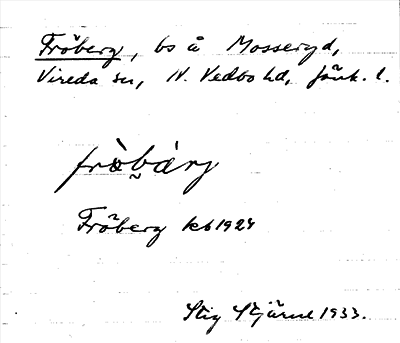 Fröberg, bs å Mosseryd,
Vireda sn, N. Vedbo hd, Jönk. l.
frö̀bárj
Fröberg kb 1924
Stig Stjärne 1933.